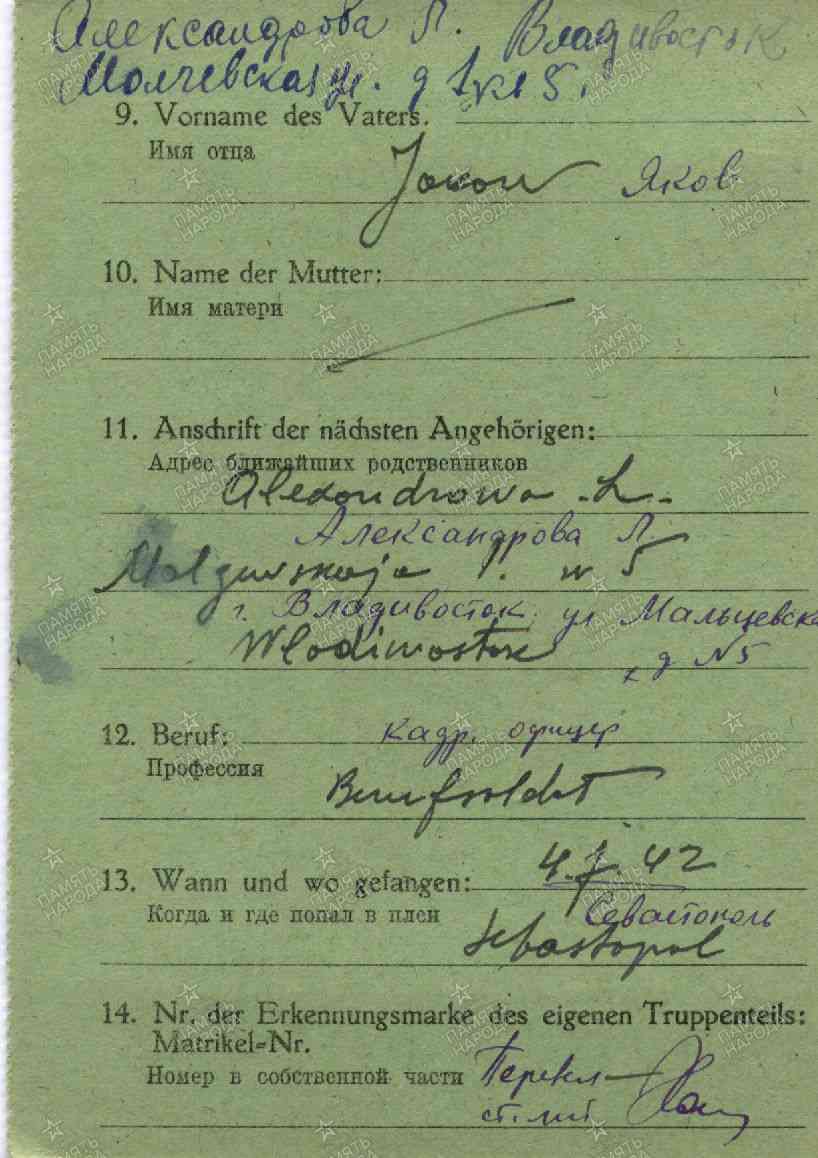 Александрова Л. Владивосток
Молчевская ул. д 1 кв 5.
9. Vorname des Vaters.
Имя отца
Jakow Яков
10. Name der Mutter:
Имя матери
11. Anschrift der nächsten Angehörigen:
Адрес ближайших родственников
Alexandrowa L.
Александрова Л.
5
г. Владивосток ул Мальцевска
Wladiwostok
д N5
12. Beruf: кадр. офицер
Профессия
Berufsoldat
13. Wann und wo gefangen: 4.7.42
Когда и где попал в плен Севастополь
Sebastopol
14. Nr. der Erkennungsmarke des eigenen Truppenteils:
Matrikel-Nr.
Номер в собственной части Перевел
ст. лит
ПАМЯТЬ
НАРОДА